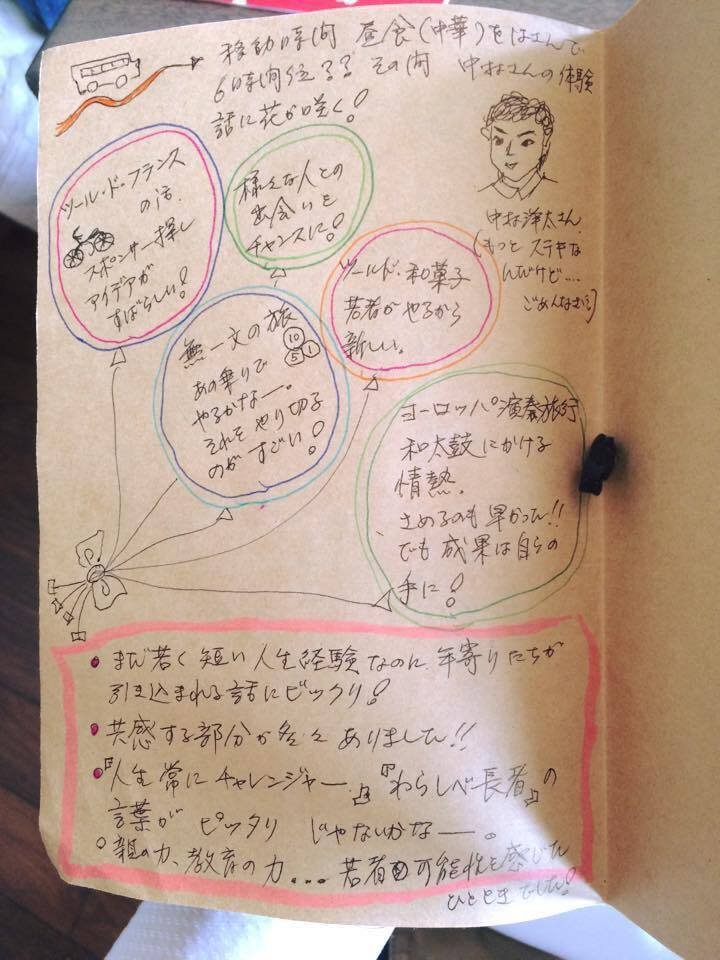 移動時間 昼食(中華)をはさんで
6時間位?? その間 中村さんの体験
話に花が咲く!
ツール・ド・フランス
の話。
スポンサー探し
アイデアが
すばらしい!
様々な人との
出会いを
チャンスに!
中村洋太さん
(もっと ステキな
んだけど....
ごめんなさい)
ツールド・和菓子
若者がやるから
新しい。
無一文の旅
10
5 1
あの乗りで
やるかなー。
それをやり切る
のが すごい!
ヨーロッパ演奏旅行
和太鼓にかける
情熱。
さめるのも早かった!!
でも成果は自らの
手に!
まだ若く短い人生経験なのに、年寄りたちが
引き込まれる話にビックリ!
共感する部分が多々ありました!!
『人生常にチャレンジャー』『わらしべ長者』の
言葉が ピッタリ じゃないかなー。
親の力、教育の力... 若者の可能性を感じた
ひとときでした!